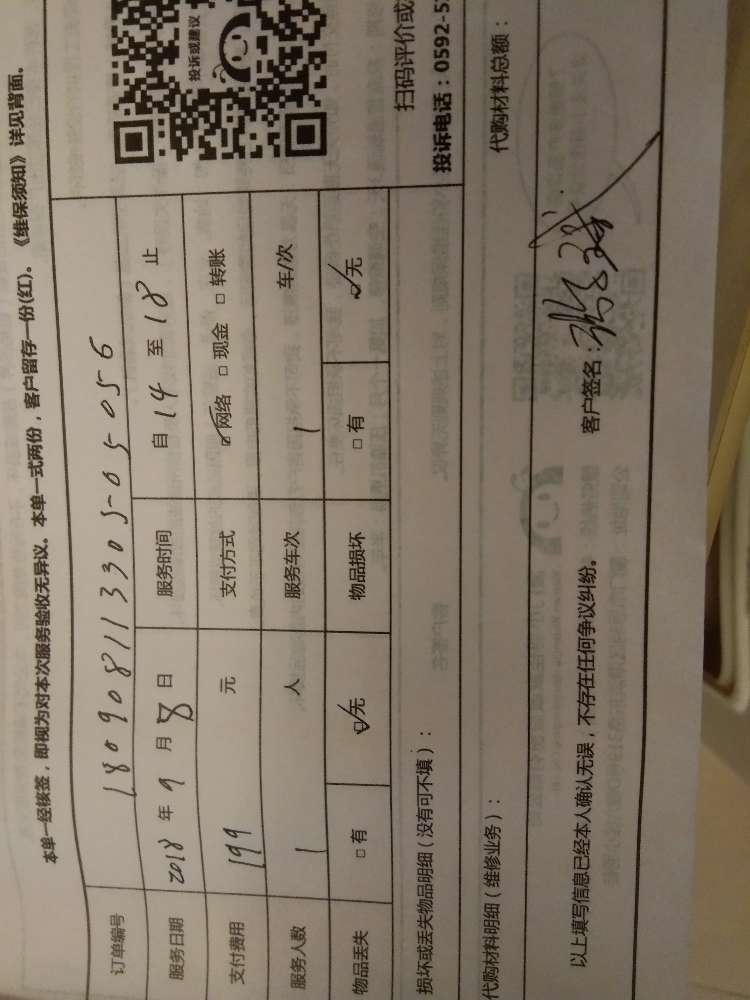 本单一经核签，即视为对本次服务验收无异议。本单一式两份，客户留存一份(红)。《维保须知》详见背面。
订单编号 180908113305-05056
服务日期 2018 年 9 月 8 日 服务时间 自 14 至 18 止
支付费用 199 元 支付方式 ☑网络 □现金 □转账
服务人数 1 人 服务车次 1 车/次
物品丢失 □有 ☑无 物品损坏 □有 ☑无
投诉或建议
扫码评价或
投诉电话：0592-5
损坏或丢失物品明细（没有可不填）：
代购材料明细（维修业务）： 代购材料总额：
以上填写信息已经本人确认无误，不存在任何争议纠纷。 客户签名：